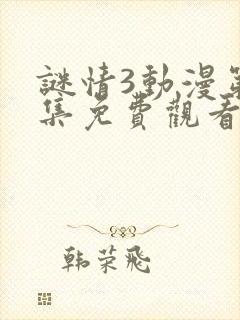 謎情3動漫第
集免費觀看
韩荣飛